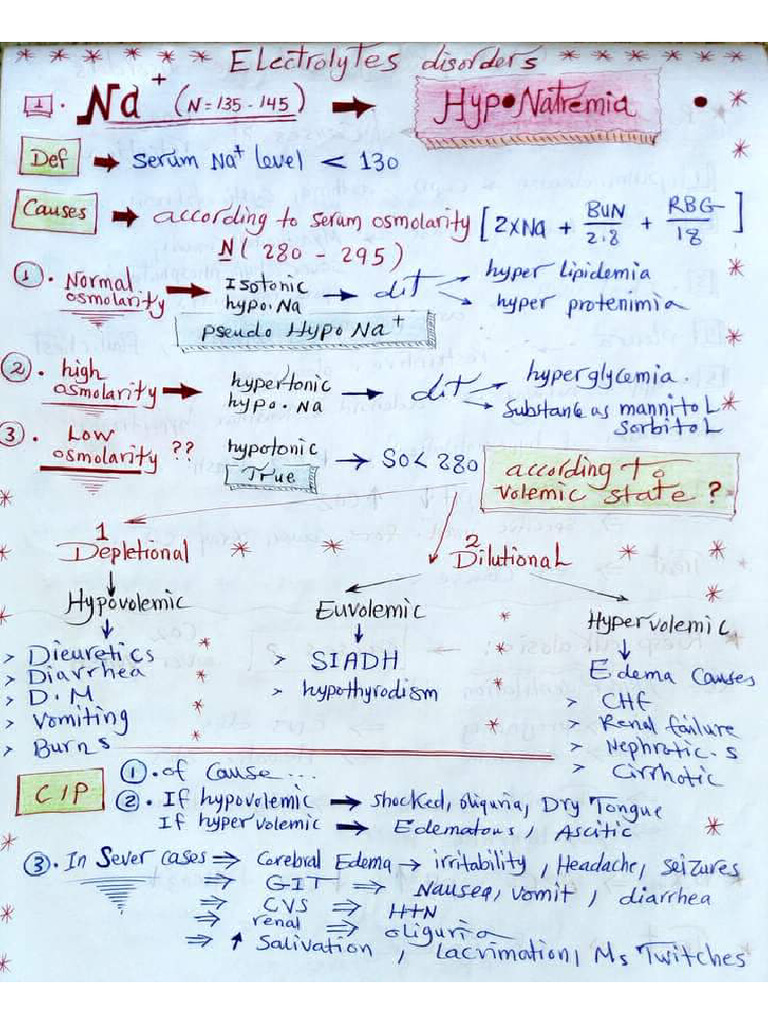 Electrolytes disorders
1. Na+ (N=135-145) → Hypo Natremia
Def → Serum Na+ level < 130
Causes → according to serum osmolarity [2xNa + BUN/2.8 + RBG/18]
N (280 - 295)
① Normal osmolarity → Isotonic hypo.Na → dit → hyper lipidemia
→ hyper protenimia
pseudo Hypo Na+
② high osmolarity → hypertonic hypo.Na → dit → hyperglycemia.
→ Substance as mannitol
Sorbitol
③ Low osmolarity ?? hypotonic → SO < 280
True
according to volemic state ?
1 Depletional
2 Dilutional
Hypovolemic
Euvolemic
Hypervolemic
> Dieuretics
> Diarrhea
> D.M
> Vomiting
> Burns
> SIADH
> hypothyrodism
Edema Causes
> CHF
> Renal failure
> Nephrotic.s
> Cirrhotic
C/P
①. of Cause...
②. If hypovolemic → shocked, oliguria, Dry Tongue
If hypervolemic → Edematous, Ascitic
③. In Sever cases ⇒ Cerebral Edema → irritability, Headache, seizures
⇒ GIT ⇒ Nausea, vomit, diarrhea
⇒ CVS ⇒ HTN
⇒ renal ⇒ oliguria
⇒ ↑ Salivation, lacrimation, Ms Twitches